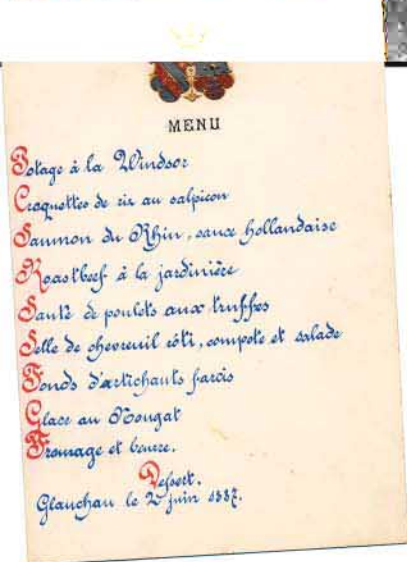 MENU
Potage à la Windsor
Croquettes de riz au salpicon
Saumon du Rhin, sauce hollandaise
Roastbeef à la jardinière
Sauté de poulets aux truffes
Selle de chevreuil rôti, compote et salade
Fonds d'artichauts farcis
Glace au Nougat
Fromage et beurre.
Dessert.
Glauchau le 2 juin 1887.